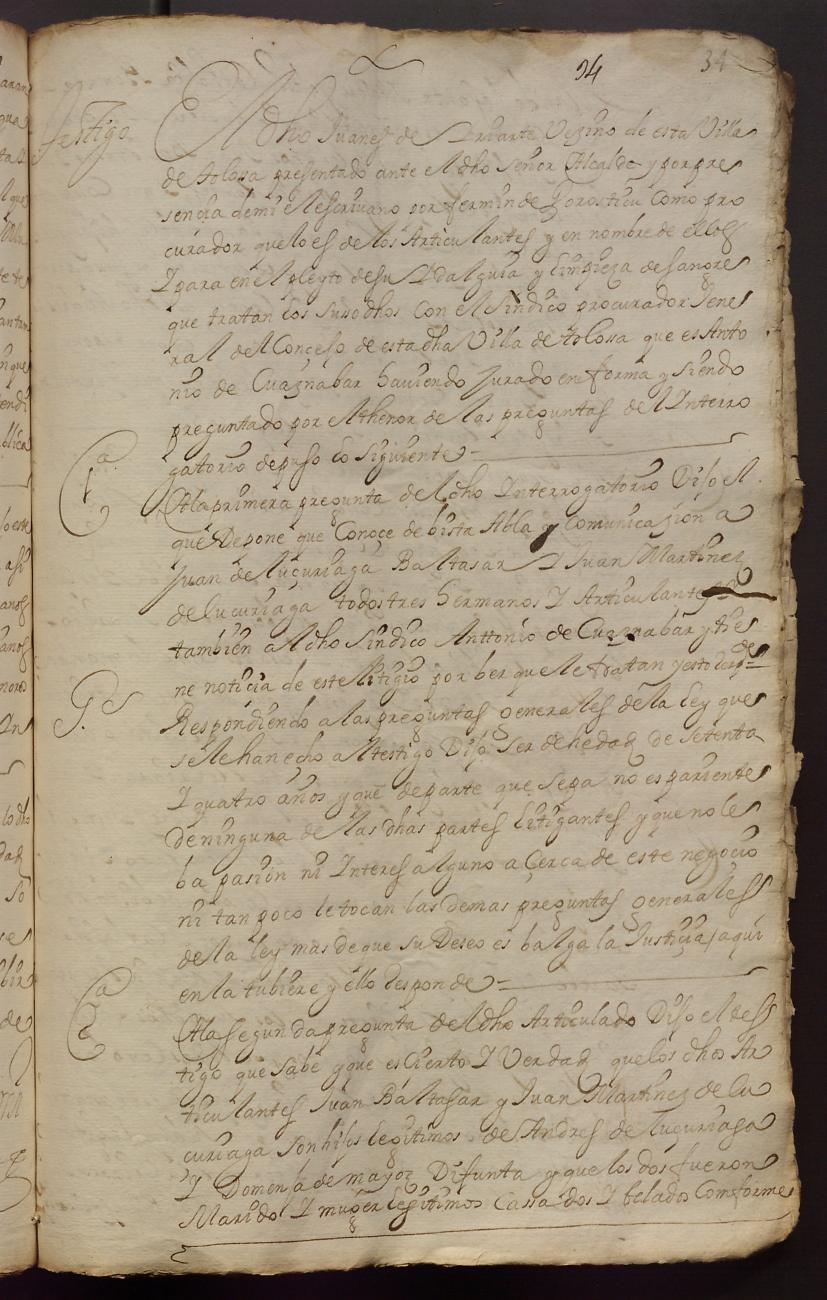 94 34
Testigo
El dho Juanes de Yriarte Vezino de esta Villa
de tolosa presentado ante el dho señor Alcalde y por pre
sencia de mi el escrivano por fermin de Gorosticu Como pro
curador que lo es de los Articulantes y en nombre de ellos
Y para en el pleyto de su Ydalguia y limpieza de sangre
que tratan los susodhos con el sindico procurador Jene
ral del Concejo de esta dha Villa de tolosa que es Anto
nio de Cuaznabar haviendo Jurado en forma y siendo
preguntado por el thenor de las preguntas del Interro
gatorio depuso lo siguiente
1ª
A la primera pregunta del dho Interrogatorio Dijo el
que Depone que Conoçe de bista Abla y Comunicazion a
Juan de lucuriaga Baltasar Y Juan Martinez
de lucuriaga todos tres hermanos Y Articulantes
tambien al dho sindico Anttonio de Cuaznabar y tie
ne noticia de este litigio por ber que le tratan y esto
Gs
Respondiendo a las preguntas generales de la ley que
se le han echo al testigo Dijo ser de hedad de setenta
Y quatro años y que de parte que sepa no es pariente
de ninguna de las dhas partes litigantes y que no le
ba pasion ni Interes alguno a çerca de este negocio
ni tan poco le tocan las demas preguntas generales
de la ley mas de que su Deseo es balga la Justiçia a quí
en la tubiere y ello Responde
2ª
A la segunda pregunta del dho Articulado Dijo el tes
tigo que sabe y que es Cierto Y Verdad que los dhos Ar
ticulantes Juan Baltasar y Juan Martinez de lu
curiaga son hijos legitimos de Andres de lucuriaga
Y Domenja de mayoz Difunta y que los dos fueron
Marido Y muger legitimos Cassados Y belados Comforme